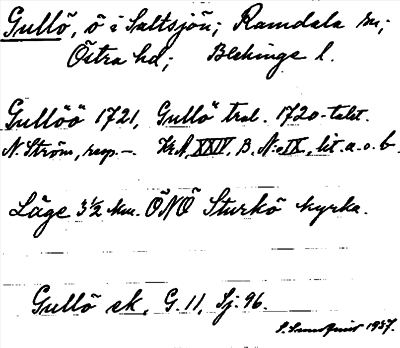 Gullö, ö i Saltsjön; Ramdala sn;
Östra hd; Blekinge l.
Gullöö 1721, Gullö trol. 1720-talet.
N. Ström, resp. –. KrA, XXIV, B. N:o IX, lit. a. o. b.
Läge 3½ km. ÖNÖ Sturkö kyrka.
Gullö ek. G. 11, Sj. 96.
1937.